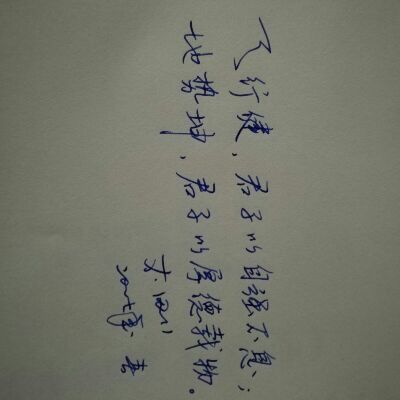 天行健，君子以自强不息；
地势坤，君子以厚德载物。